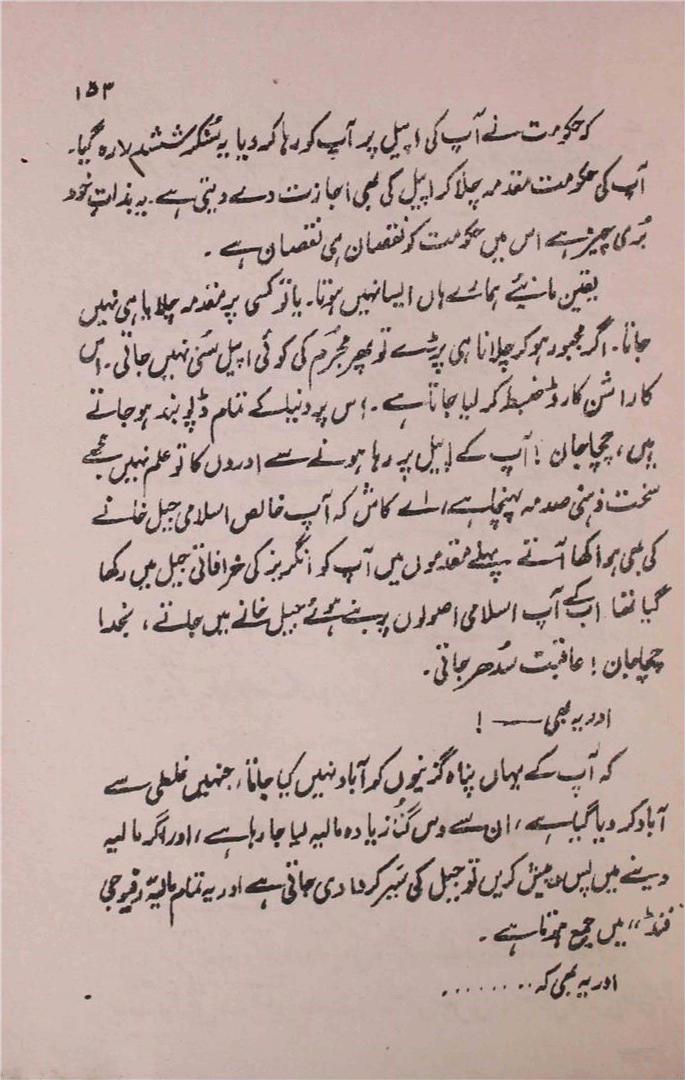 ۱۵۳
کہ حکومت نے آپ کی اپیل پر آپ کو رہا کر دیا یہ سُنکر ششدر رہ گیا۔
آپ کی حکومت مقدمہ چلا کر اپیل کی بھی اجازت دے دیتی ہے۔ یہ بذاتِ خود
بُری چیز ہے اس میں حکومت کو نقصان ہی نقصان ہے۔
یقین مانیئے ہمارے ہاں ایسا نہیں ہوتا۔ یا تو کسی پر مقدمہ چلایا ہی نہیں
جاتا۔ اگر مجبور ہو کر چلانا ہی پڑے تو پھر مجرُم کی کوئی اپیل سُنی نہیں جاتی۔ اس
کا راشن کارڈ ضبط کر لیا جاتا ہے۔ اس پر دنیا کے تمام ڈپو بند ہو جاتے
ہیں، چچا جان! آپ کے اپیل پر رہا ہونے سے اوروں کا تو علم نہیں مجھے
سخت ذہنی صدمہ پہنچا ہے، اے کاش کہ آپ خالص اسلامی جیل خانے
کی بھی ہوا کھا آتے پہلے مقدموں میں آپ کو انگریز کی خرافاتی جیل میں رکھا
گیا تھا اب کے آپ اسلامی اصولوں پر بنے ہوئے جیل خانے میں جاتے، بخدا
چچا جان! عاقبت سُدھر جاتی۔
اور یہ بھی ——!
کہ آپ کے یہاں پناہ گزینوں کو آباد نہیں کیا جاتا، جنہیں غلطی سے
آباد کر دیا گیا ہے، ان سے دس گُنا زیادہ مالیہ لیا جا رہا ہے، اور اگر مالیہ
دینے میں پس و پیش کریں تو جیل کی سَیر کرا دی جاتی ہے اور یہ تمام مالیہ "فوجی
فنڈ" میں جمع ہوتا ہے۔
اور یہ بھی کہ ........